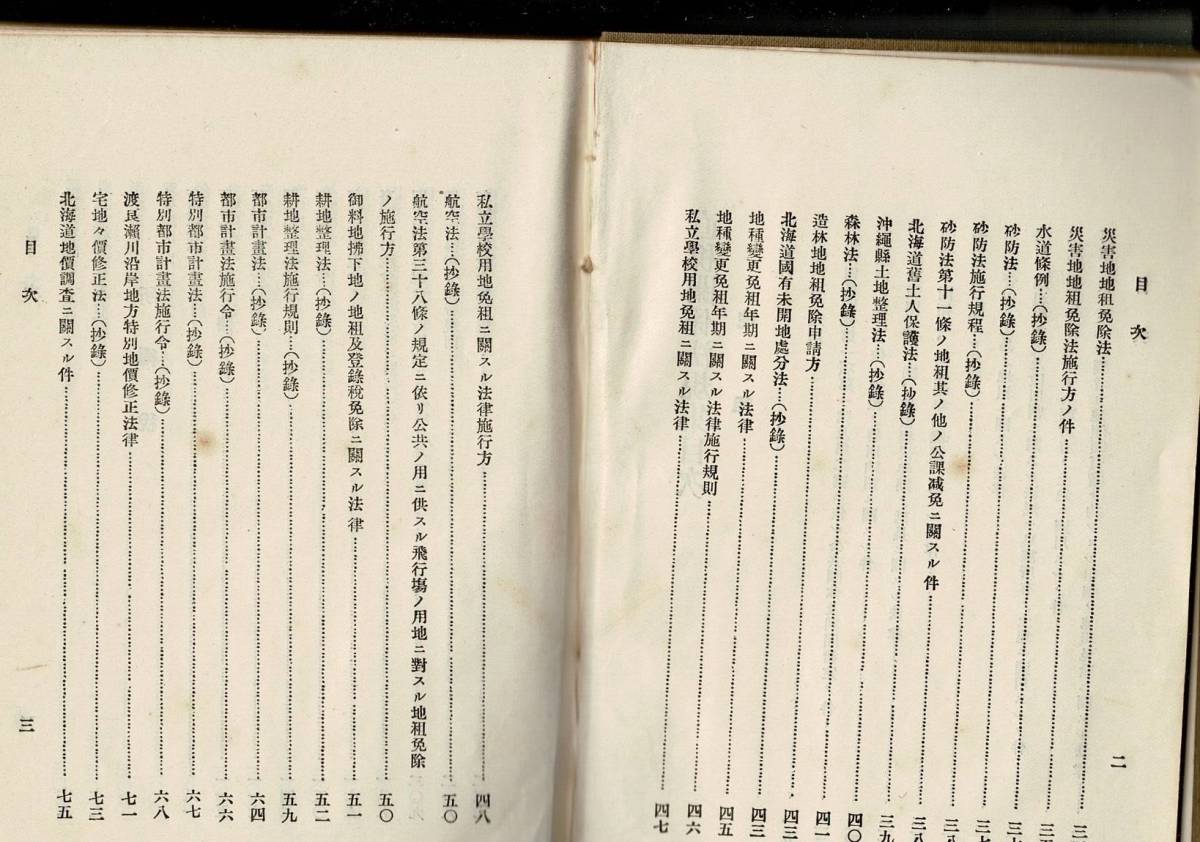 目次
二
災害地地租免除法……三
災害地地租免除法施行方ノ件……三
水道條例…(抄錄)……三
砂防法…(抄錄)……三
砂防法施行規程…(抄錄)……三七
砂防法第十一條ノ地租其ノ他ノ公課減免ニ關スル件……三八
北海道舊土人保護法…(抄錄)……三八
沖繩縣土地整理法…(抄錄)……三九
森林法…(抄錄)……四〇
造林地地租免除申請方……四一
北海道國有未開地處分法…(抄錄)……四三
地種變更免租年期ニ關スル法律……四三
地種變更免租年期ニ關スル法律施行規則……四五
私立學校用地免租ニ關スル法律……四六
四七
私立學校用地免租ニ關スル法律施行方……四八
航空法…(抄錄)……五〇
航空法第三十八條ノ規定ニ依リ公共ノ用ニ供スル飛行場ノ用地ニ對スル地租免除
ノ施行方……五〇
御料地拂下地ノ地租及登錄稅免除ニ關スル法律……五一
耕地整理法…(抄錄)……五二
耕地整理法施行規則…(抄錄)……五九
都市計畫法…(抄錄)……六四
都市計畫法施行令…(抄錄)……六六
特別都市計畫法…(抄錄)……六七
特別都市計畫法施行令…(抄錄)……六八
渡良瀨川沿岸地方特別地價修正法律……七一
宅地々價修正法…(抄錄)……七三
北海道地價調査ニ關スル件……七五
目次
三